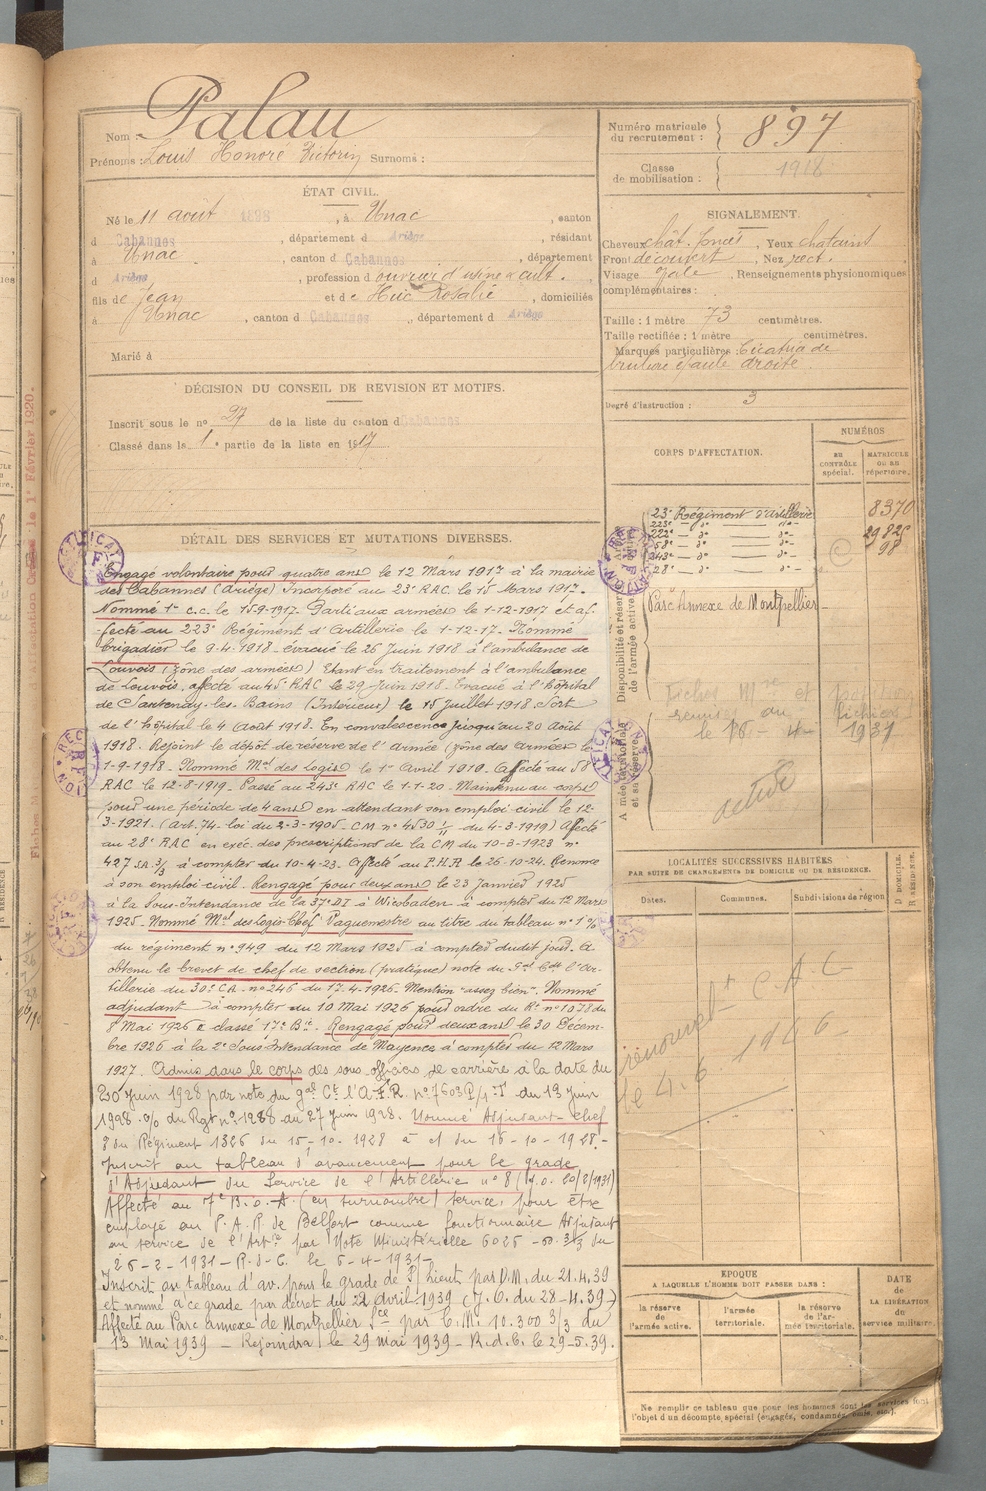 Nom : Palau
Prénoms : Louis Honoré Victorin Surnoms :
Numéro matricule du recrutement : 897
Classe de mobilisation : 1918
ÉTAT CIVIL.
Né le 11 août 1898, à Unac, canton
d Cabannes, département d Ariège, résidant
à Unac, canton d Cabannes, département
d Ariège, profession d ouvrier d'usine & cult.
fils de Jean et de Huc Rosalie, domiciliés
à Unac, canton d Cabannes, département d Ariège
Marié à
SIGNALEMENT.
Cheveux chât. foncé, Yeux chatains
Front découvert, Nez rect.
Visage ovale, Renseignements physionomiques
complémentaires :
Taille : 1 mètre 73 centimètres.
Taille rectifiée : 1 mètre centimètres.
Marques particulières : Cicatrice de
brulure épaule droite
Degré d'instruction : 3
DÉCISION DU CONSEIL DE REVISION ET MOTIFS.
Inscrit sous le no 27 de la liste du canton d Cabannes
Classé dans la 1e partie de la liste en 1917
DÉTAIL DES SERVICES ET MUTATIONS DIVERSES.
Engagé volontaire pour quatre ans le 12 Mars 1917 à la mairie
des Cabannes (Ariège) Incorporé au 23e RAC. le 15 Mars 1917.
Nommé 1er c.c. le 15-9-1917. Parti aux armées le 1-12-1917 et af-
-fecté au 223e Régiment d'Artillerie le 1-12-17. Nommé
brigadier le 9-4-1918. évacué le 26 Juin 1918 à l'ambulance de
Louvois (zône des armées) Etant en traitement à l'ambulance
de Louvois, affecté au 45e RAC le 29 Juin 1918. Evacué à l'hôpital
de Santenay-les-Bains (Intérieur) le 15 Juillet 1918. Sort
de l'hôpital le 4 Août 1918. En convalescence jusqu'au 20 Août
1918. Rejoint le dépôt de réserve de l'Armée (zône des armées) le
1-9-1918. Nommé Mal des Logis le 1er Avril 1919. Affecté au 58
RAC le 12-8-1919. Passé au 243e RAC le 1-1-20. Maintenu au corps
pour une période de 4 ans en attendant son emploi civil le 12-
3-1921. (art. 74 - loi du 2-3-1905 - CM no 4530 1/11 du 4-3-1919) Affecté
au 28e RAC en exéc. des prescriptions de la CM du 10-3-1923 no
427 SA. 3/3 à compter du 10-4-23. Affecté au P.H.R le 26-10-24. Renonce
à son emploi civil. Rengagé pour deux ans le 23 Janvier 1925
à la Sous-Intendance de la 37e DI à Wiesbaden à compter du 12 Mars
1925. Nommé Mal des Logis Chef Vaguemestre au titre du tableau no 1 %
du régiment no 949 du 12 Mars 1925 à compter dudit jour. A
obtenu le brevet de chef de section (pratique) note du Gal Cdt l'Ar-
tillerie du 30e CA. no 246 du 17-4-1926. Mention "assez bien". Nommé
adjudant à compter du 10 Mai 1926 pour ordre du Rt no 1078 du
8 Mai 1926 & classé 17e Bie. Rengagé pour deux ans le 30 Décem-
bre 1926 à la 2e Sous-Intendance de Mayence à compter du 12 Mars
1927. Admis dans le corps des sous officiers de carrière à la date du
20 Juin 1928 par note du gal Ct l'A.F.R. no 7603 P/1-T du 19 juin
1928. o/o du Rgt no 1288 du 27 Juin 1928. Nommé Adjudant-chef
o du Régiment 1326 du 15-10-1928 à ct du 16-10-1928-
Inscrit au tableau d'avancement pour le grade
d'Adjudant du Service de l'Artillerie no 8 (J.O. 20/2/1931)
Affecté au 7e B.O.A. (en surnombre) service, pour être
employé au P.A.R. de Belfort comme fonctionnaire Adjudant
au service de l'Artie par Note Ministérielle 6025 - 3/3 du
26-2-1931 - R.d.C. le 6-4-1931-
Inscrit au tableau d'av. pour le grade de par D.M. du 21.4.39
et nommé à ce grade par décret du 22 Avril 1939 (J.O. du 28-4.39)
Affecté au Parc annexe de Montpellier par C.M. 10.300 3/3 du
13 Mai 1939 - Rejoindra le 29 mai 1939 - R.d.C. le 29-5.39.
CORPS D'AFFECTATION.
NUMÉROS
AU CONTRÔLE spécial.
MATRICULE OU AU répertoire.
Disponibilité et réserve de l'armée active.
23e Régiment d'Artillerie 8370
223e — do — do —
222e — do — do — 2982
58e — do — do — 98
243e — do — do —
28e — do — do —
Parc Annexe de Montpellier
Armée territoriale et sa réserve.
Fiches Mle et
remises au fichier
le 16 - 4 - 1937
active
LOCALITÉS SUCCESSIVES HABITÉES
PAR SUITE DE CHANGEMENTS DE DOMICILE OU DE RÉSIDENCE.
Dates. Communes. Subdivisions de région D DOMICILE. R RÉSIDENCE.
renouvelt C.A.C
le 4.6 1966
EPOQUE
A LAQUELLE L'HOMME DOIT PASSER DANS :
la réserve de l'armée active. l'armée territoriale. la réserve de l'armée territoriale.
DATE de LA LIBÉRATION du service militaire.
Ne remplir ce tableau que pour les hommes dont les services font
l'objet d'un décompte spécial (engagés, condamnés, omis, etc.).